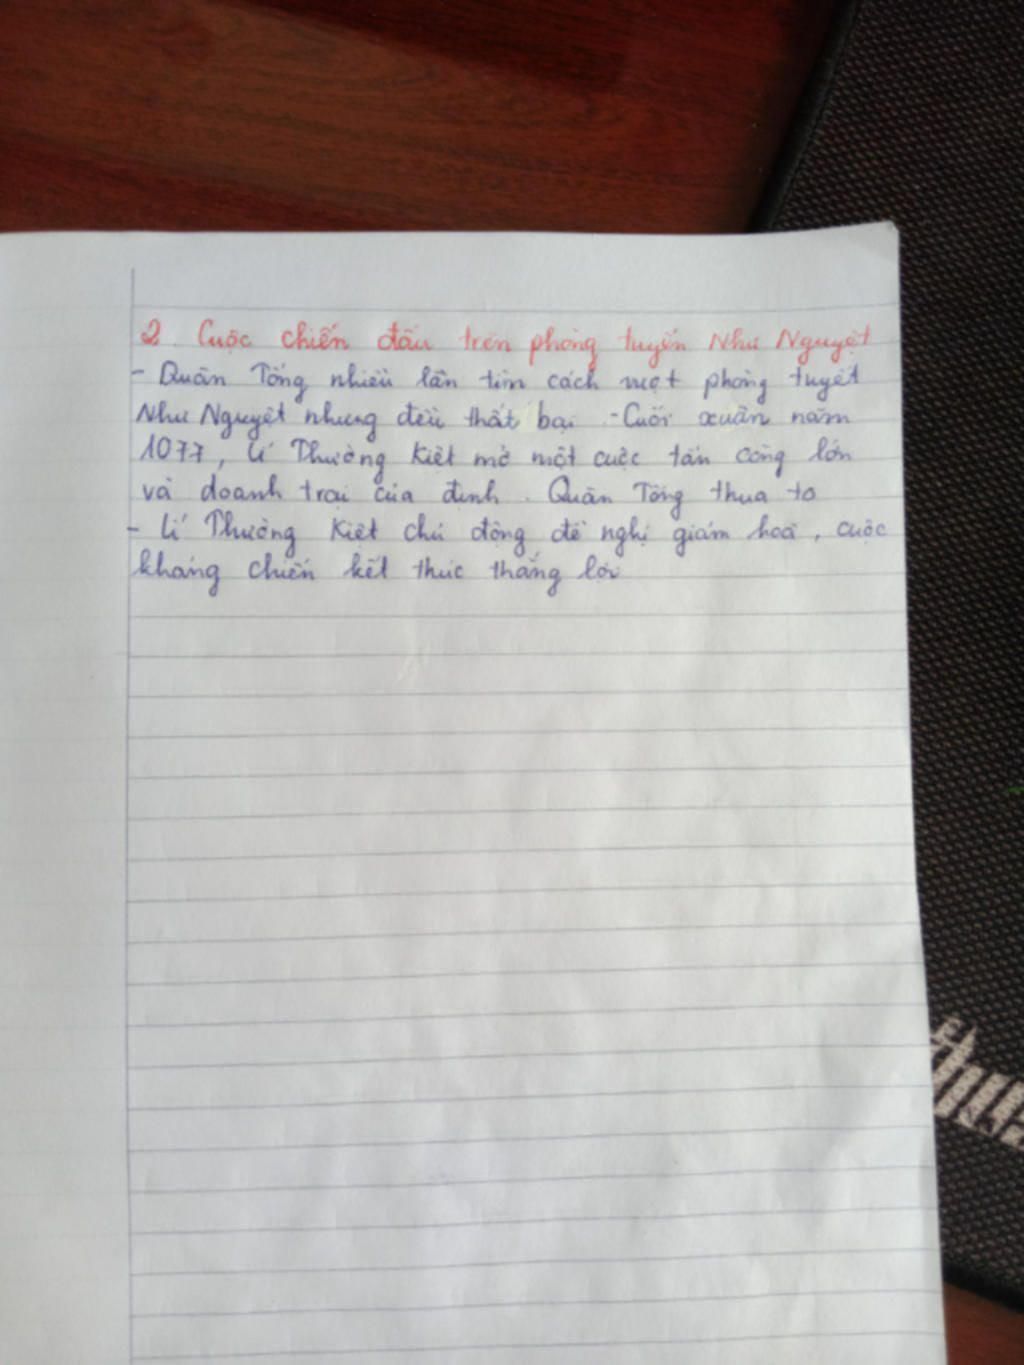 2. Cuộc chiến đấu trên phòng tuyến Như Nguyệt
- Quân Tống nhiều lần tìm cách vượt phòng tuyết
Như Nguyệt nhưng đều thất bại - Cuối xuân năm
1077, Lí Thường Kiệt mở một cuộc tấn công lớn
và doanh trại của định. Quân Tống thua to
- Lí Thường Kiệt chủ động đề nghị giảm hoà, cuộc
kháng chiến kết thúc thắng lợi